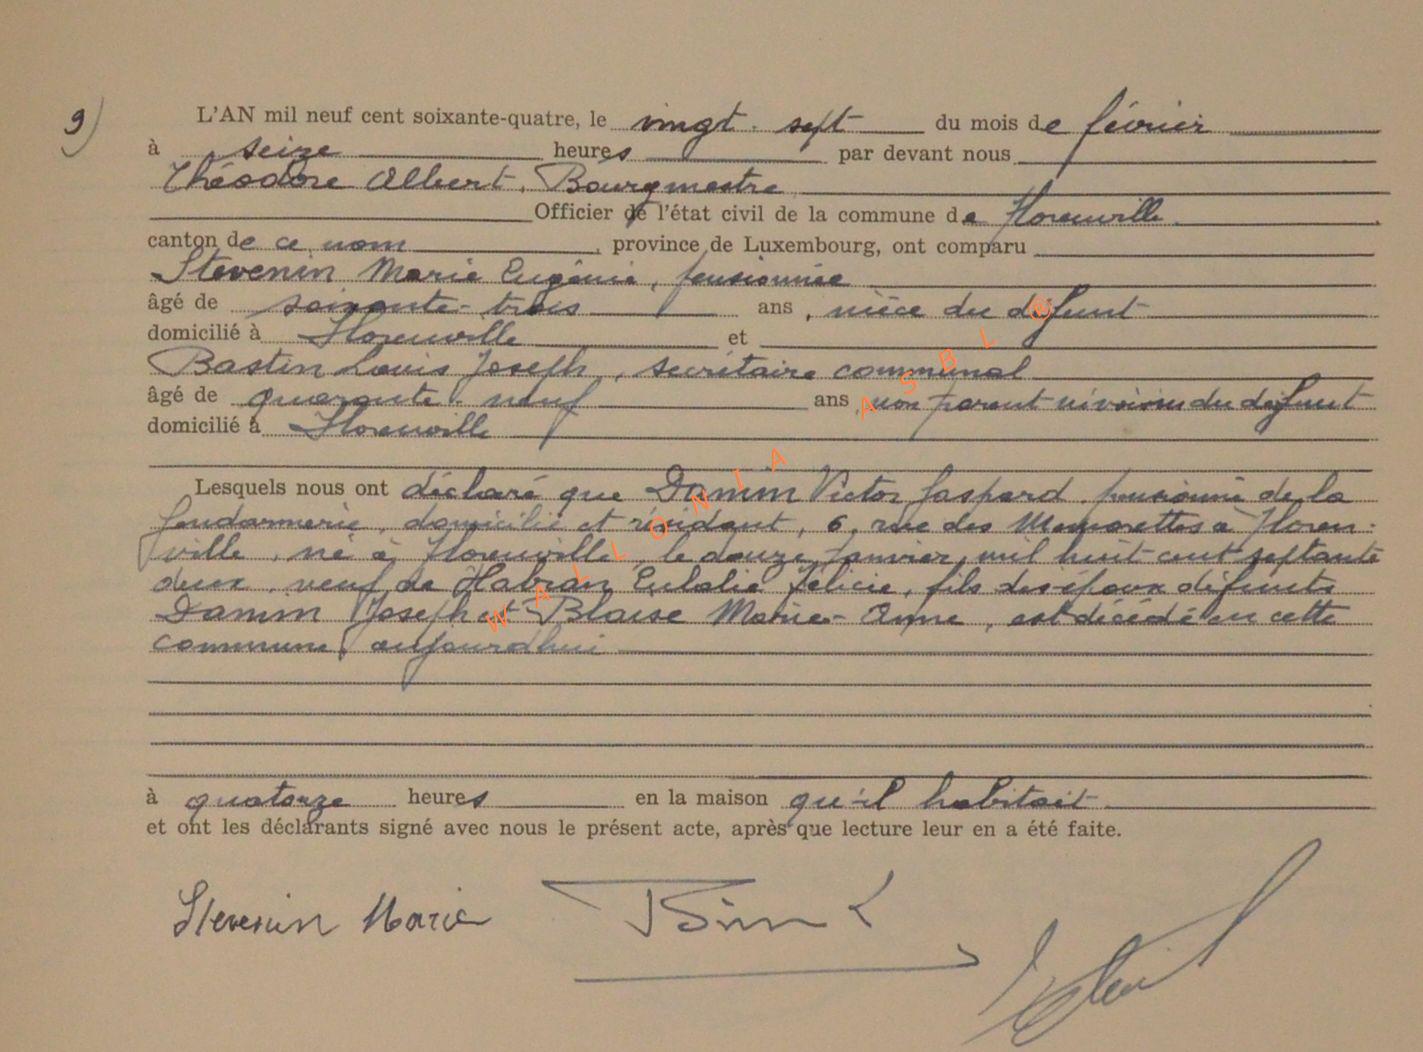 9) L'AN mil neuf cent soixante-quatre, le vingt-sept du mois de février
à seize heures par devant nous
Théodore Albert, Bourgmestre
Officier de l'état civil de la commune de Florenville
canton de ce nom, province de Luxembourg, ont comparu
Stevenin Marie Eugénie, pensionnée
âgé de soixante-trois ans, nièce du défunt
domicilié à Florenville et
Bastin Louis Joseph, secrétaire communal
âgé de quarante-neuf ans, non parent ni voisin du défunt
domicilié à Florenville
Lesquels nous ont déclaré que Damin Victor Gaspard, pensionné de la
gendarmerie, domicilié et résidant, 6, rue des à Floren-
ville, né à Florenville, le douze janvier mil huit cent septante
deux, veuf de Habran Eulalie Félicie, fils des époux défunts
Damin Joseph et Blaise Marie-Anne, est décédé en cette
commune, aujourd'hui
à quatorze heures en la maison qu'il habitait
et ont les déclarants signé avec nous le présent acte, après que lecture leur en a été faite.
Stevenin Marie
WALLONIA ASBL ©